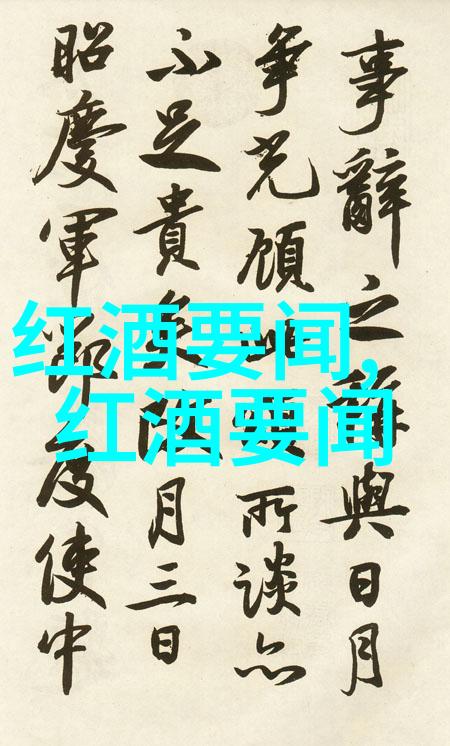 红酒要闻,
红酒要闻
事辭之與日月
爭光顧所談亦
不足貴矣月三日
昭慶軍節度使中